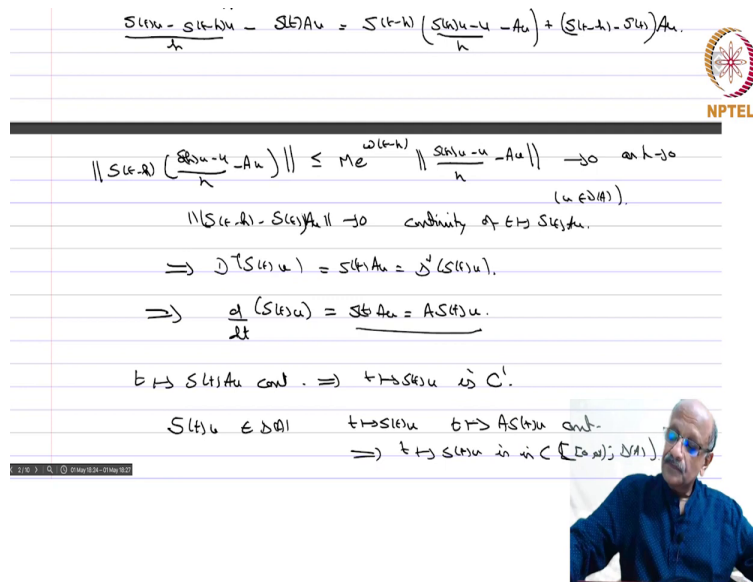 S(t)u - S(t-h)u / h - S(t)Au = S(t-h) ( S(h)u - u / h - Au ) + (S(t-h) - S(t)) Au.
NPTEL
|| S(t-h) ( S(h)u - u / h - Au ) || ≤ Me^{ω(t-h)} || S(h)u - u / h - Au || → 0 as h → 0
(u ∈ D(A)).
|| (S(t-h) - S(t)) Au || → 0 continuity of t ↦ S(t)Au.
⇒ D⁻(S(t)u) = S(t)Au = D⁺(S(t)u).
⇒ d/dt (S(t)u) = S(t)Au = AS(t)u.
t ↦ S(t)Au cont. ⇒ t ↦ S(t)u is C¹.
S(t)u ∈ D(A) t ↦ S(t)u t ↦ AS(t)u cont.
⇒ t ↦ S(t)u is in C([0,∞); D(A)).
2 / 10 01 May 18:24 - 01 May 18:27